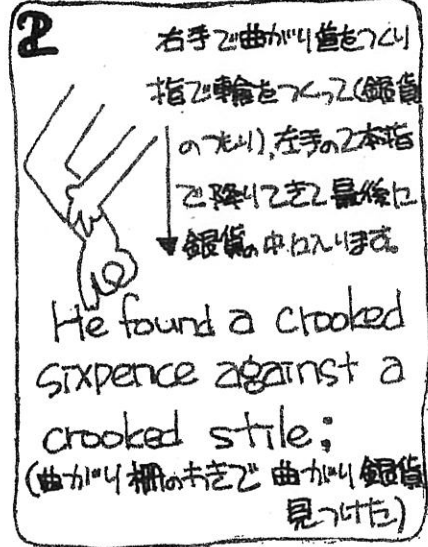 2
右手で曲がり道をつくり
指で輪をつくって(銀貨
のつもり),左手の2本指
で降りてきて最後に
銀貨の中に入ります。
He found a crooked
sixpence against a
crooked stile;
(曲がり柵のわきで 曲がり銀貨
見つけた)